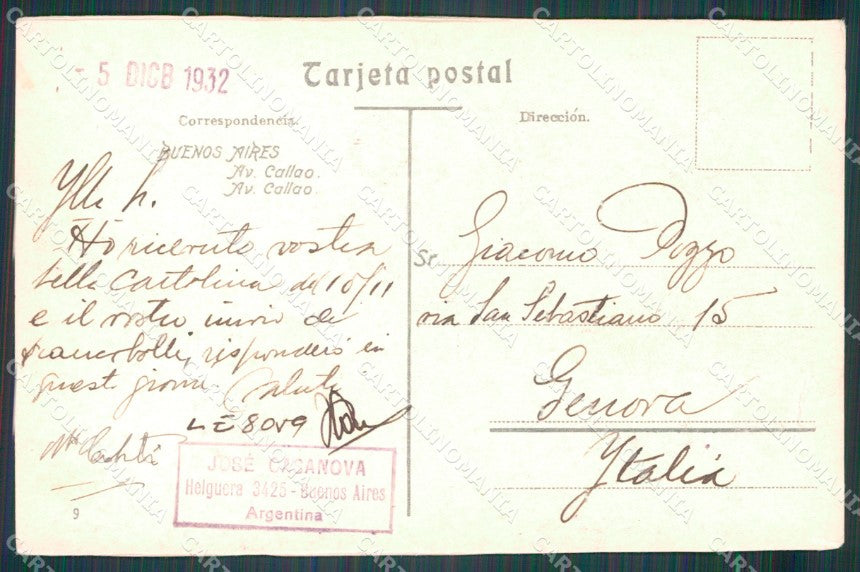 5 DICB 1932
Tarjeta postal
Correspondencia.
Dirección.
BUENOS AIRES
Av. Callao.
Av. Callao.
Ho ricevuto vostra
bella cartolina del 10/11
e il vostro invio di
francobolli, risponderò in
questi giorni. Saluti
LE 8019
JOSÉ CASANOVA
Helguera 3425 - Buenos Aires
Argentina
9
Sr Giacomo Pozzo
via San Sebastiano 15
Genova
Italia
CARTOLINOMANIA